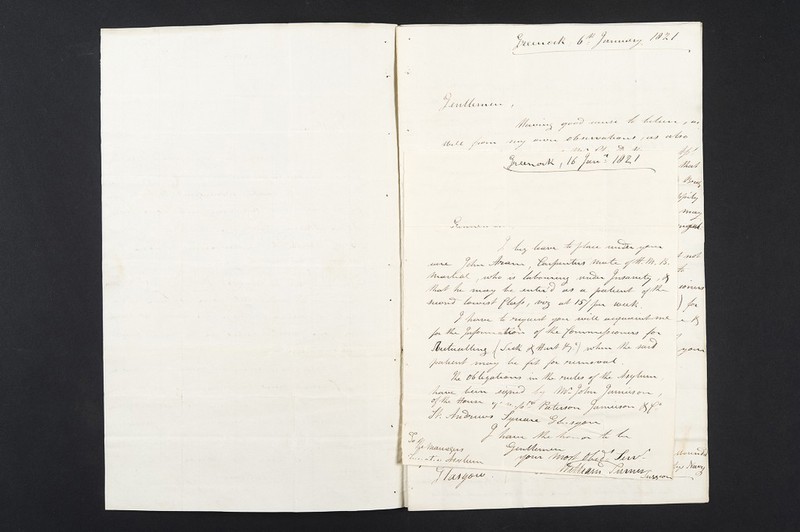 Greenock 6th January 1821
Gentlemen,
Having good cause to believe, as
well from my own observations, as also
Greenock, 16 Jany. 1821
Gentlemen
I beg leave to place under your
care John Aram, Carpenters Mate of H. M. B.
Martial, who is labouring under Insanity, &
that he may be enter'd as a patient of the
second lowest Class, viz at 15/ per week
I have to request you will acquaint me
for the Information of the Commissioners for
Victualling (Sick & Hurt &c) when the said
patient may be fit for removal.
The Obligations in the rules of the Asylum
have been signed by Mr. John Jamieson,
of the House of Paterson Jamieson & Co.
St. Andrews Square Glasgow
I have the honor to be
Gentlemen
Your Most Obedt. Servt.
William Turner
Surgeon
To
Managers
Lunatic Asylum
Glasgow
that
may
not
for
Navy